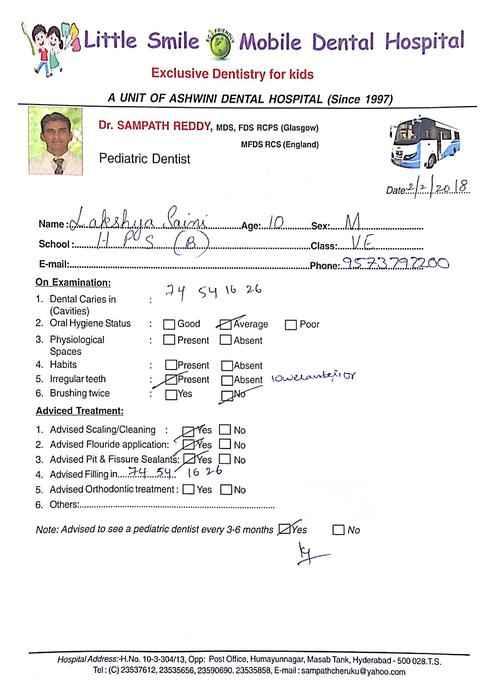 Little Smile ECO FRIENDLY Mobile Dental Hospital
Exclusive Dentistry for kids
A UNIT OF ASHWINI DENTAL HOSPITAL (Since 1997)
Dr. SAMPATH REDDY, MDS, FDS RCPS (Glasgow)
MFDS RCS (England)
Pediatric Dentist
Date: 2/2/2018
Name: Lakshya Saini Age: 10 Sex: M
School: H P S (B) Class: V E
E-mail: Phone: 9573792200
On Examination:
1. Dental Caries in : 74 54 16 26
(Cavities)
2. Oral Hygiene Status : Good Average Poor
3. Physiological : Present Absent
Spaces
4. Habits : Present Absent
5. Irregular teeth : Present Absent lower anterior
6. Brushing twice : Yes No
Adviced Treatment:
1. Advised Scaling/Cleaning : Yes No
2. Advised Flouride application: Yes No
3. Advised Pit & Fissure Sealants: Yes No
4. Advised Filling in 74 54 16 26
5. Advised Orthodontic treatment: Yes No
6. Others:
Note: Advised to see a pediatric dentist every 3-6 months Yes No
Hospital Address:-H.No. 10-3-304/13, Opp: Post Office, Humayunnagar, Masab Tank, Hyderabad - 500 028.T.S.
Tel : (C) 23537612, 23535656, 23590690, 23535858, E-mail : sampathcheruku@yahoo.com